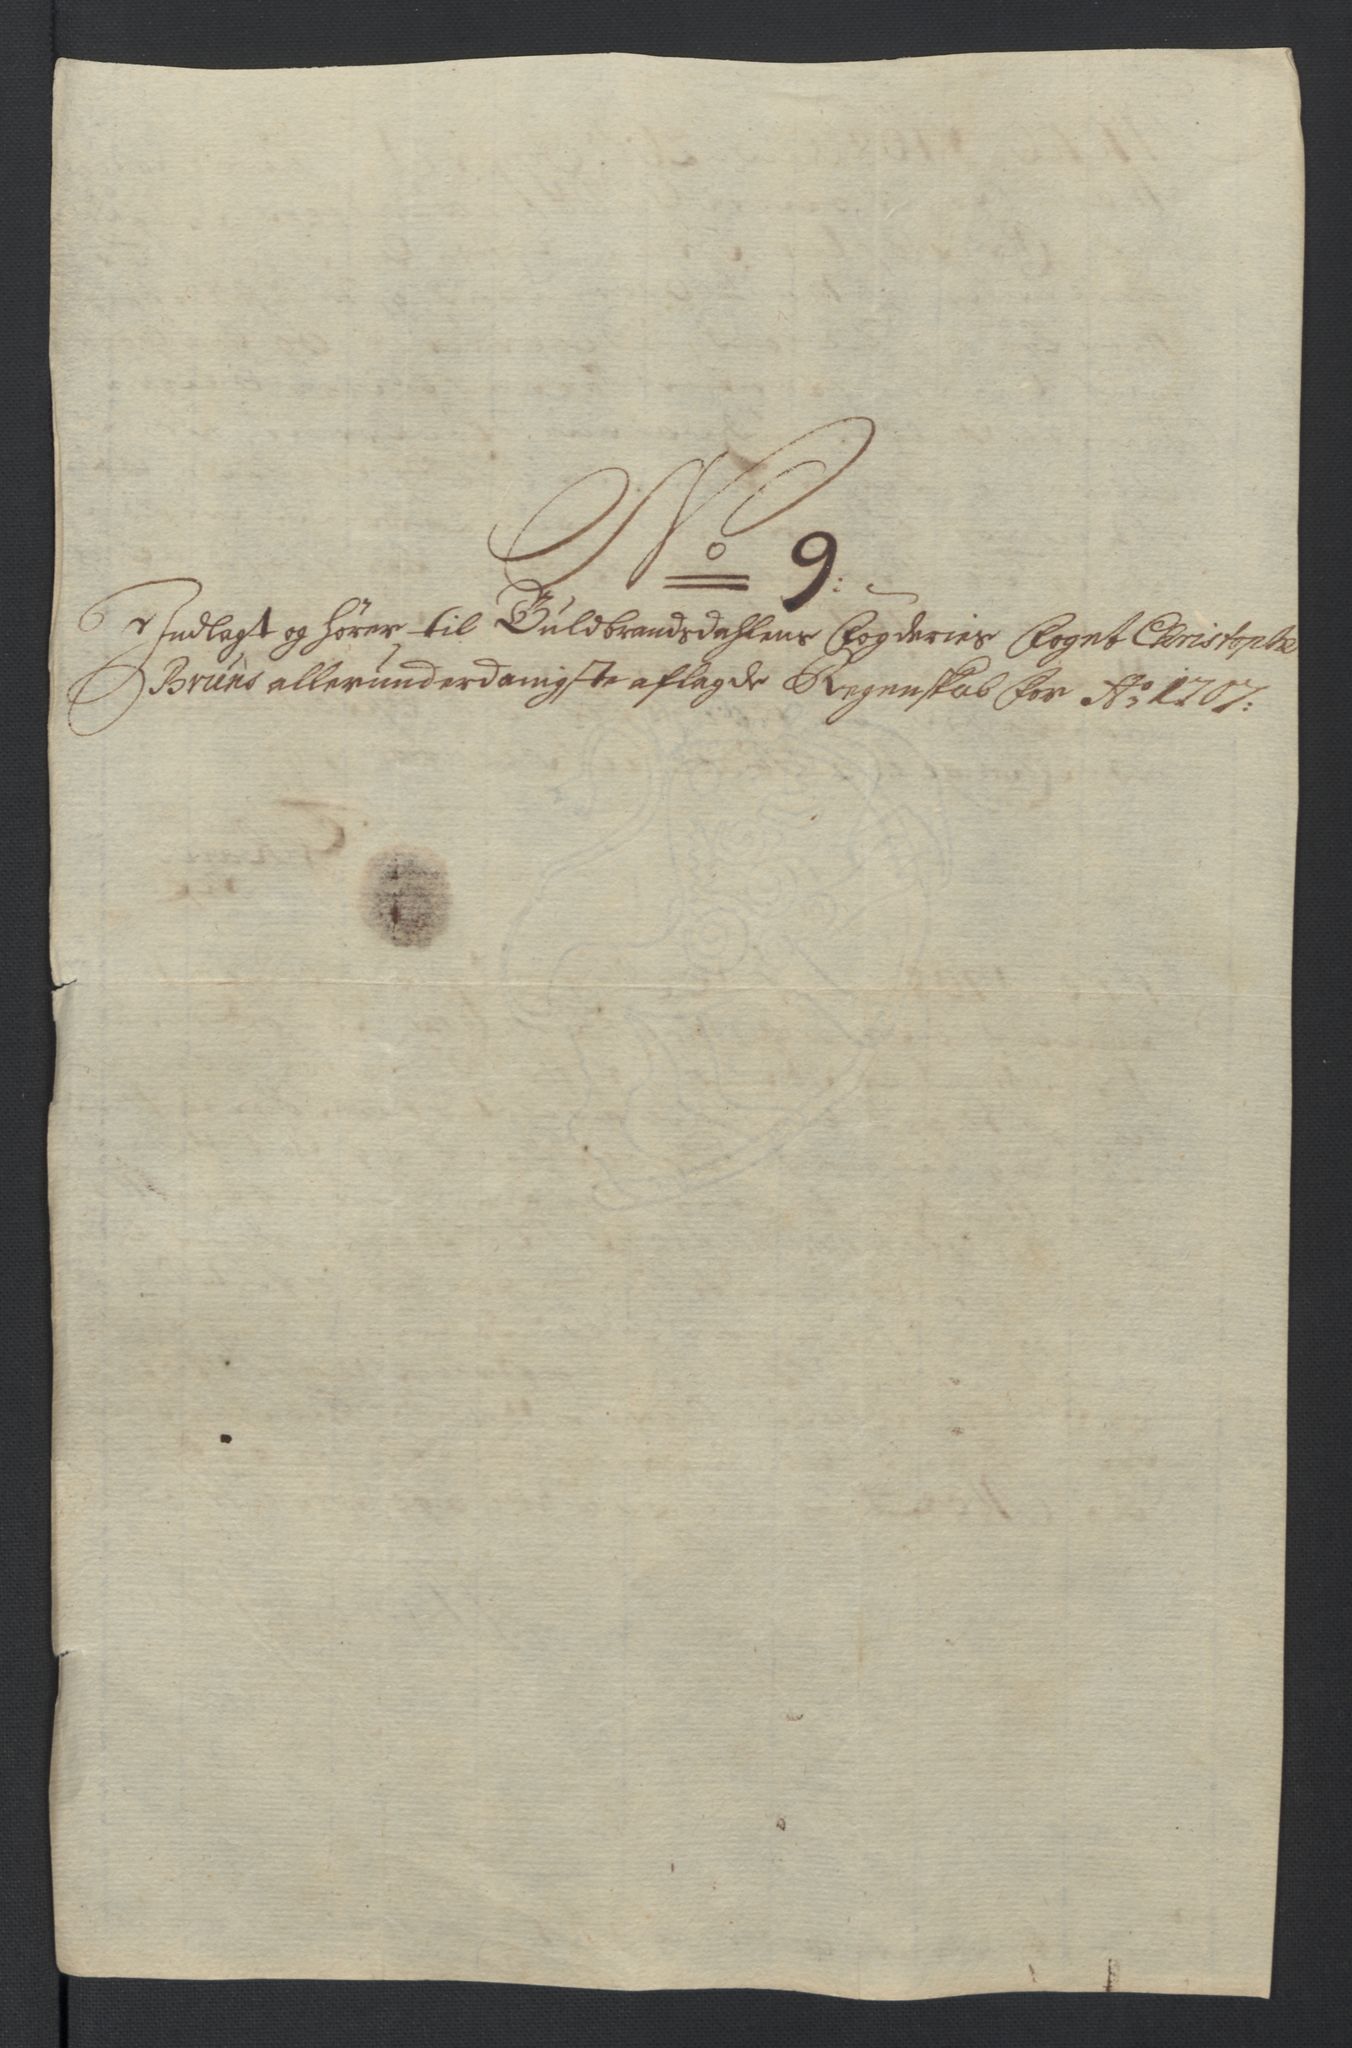 No 9:
Indlagt og hører til Guldbrandsdahlens Fogderies Foget Christopher
Bruns allerunderdanigste aflagde Regenskab for Ao 1707: